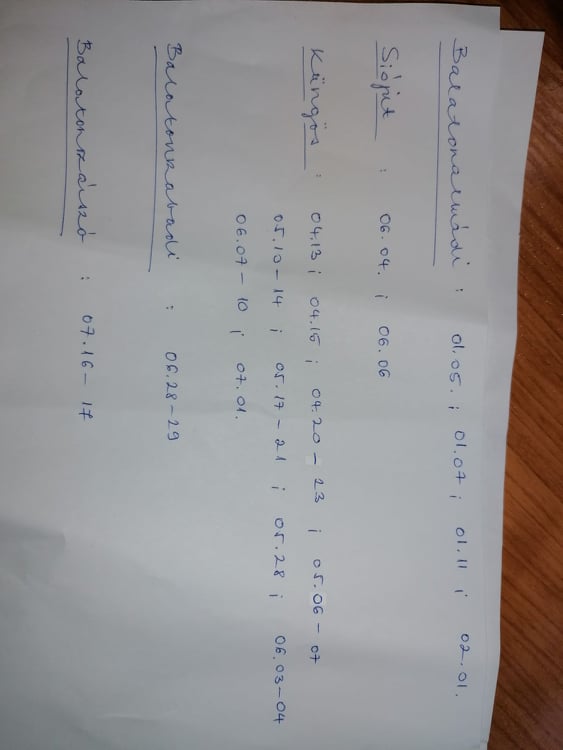 Balatonalmádi : 01.05. ; 01.07 ; 01.11 ; 02.01.
Siójut : 06.04. ; 06.06
Küngös : 04.13 ; 04.15 ; 04.20 - 23 ; 05.06 - 07
05.10 - 14 ; 05.17 - 21 ; 05.28 ; 06.03-04
06.07 - 10 ; 07.01.
Balatonszabadi : 06.28-29
Balatonszárszó : 07.16 - 17